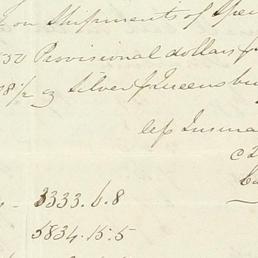 on Shipments of Spe
Provisional dollars
8 1/2 oz Silver f Queensbu
less Insura
3333.6.8
5834.15.5